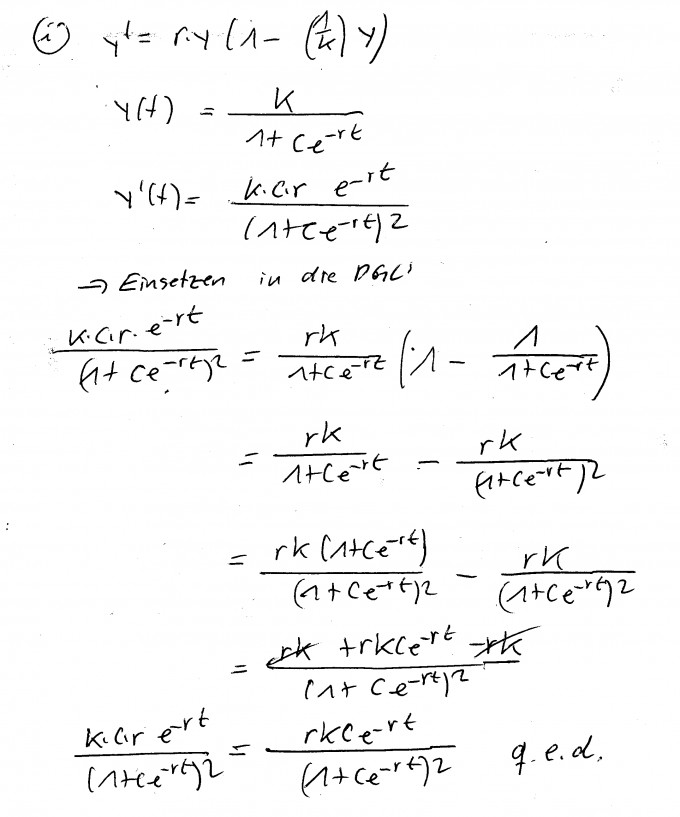 (i) y' = r·y (1 - (1/k) y)
y(t) = k / (1 + Ce^-rt)
y'(t) = k·C·r e^-rt / (1+Ce^-rt)^2
→ Einsetzen in die DGL:
k·C·r·e^-rt / (1+Ce^-rt)^2 = rk / (1+Ce^-rt) (1 - 1 / (1+Ce^-rt))
= rk / (1+Ce^-rt) - rk / (1+Ce^-rt)^2
= rk (1+Ce^-rt) / (1+Ce^-rt)^2 - rk / (1+Ce^-rt)^2
= rk + rkCe^-rt - rk / (1+Ce^-rt)^2
k·C·r e^-rt / (1+Ce^-rt)^2 = rkCe^-rt / (1+Ce^-rt)^2 q.e.d.